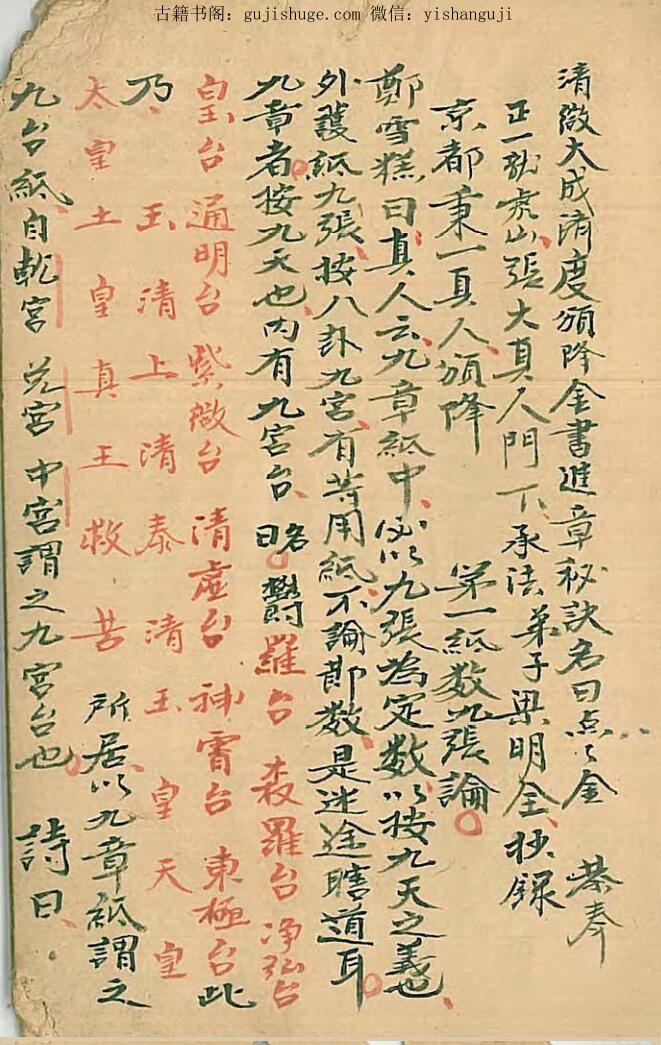 古籍书阁：gujishuge.com 微信：yishanguji
清微大成濟度頒降金書進章秘訣名曰点々金　恭奉
正一龍虎山張大真人門下承法弟子梁明全抄錄
京都秉一真人頒降　第一紙数九張論
鄭雪糕曰真人云九章紙中必以九張為定数以按九天之義也
外護紙九張按八卦九宮有等用紙不論部数是迷途瞎道耳
九章者按九天也内有九宮台名曰鬱羅台森羅台净弘台
皇台通明台紫微台清虛台神霄台東極台此
乃玉清上清泰清玉皇天皇
太皇土皇真王救苦所居以九章紙謂之
九台紙自乾宮兌宮中宮謂之九宮台也詩曰